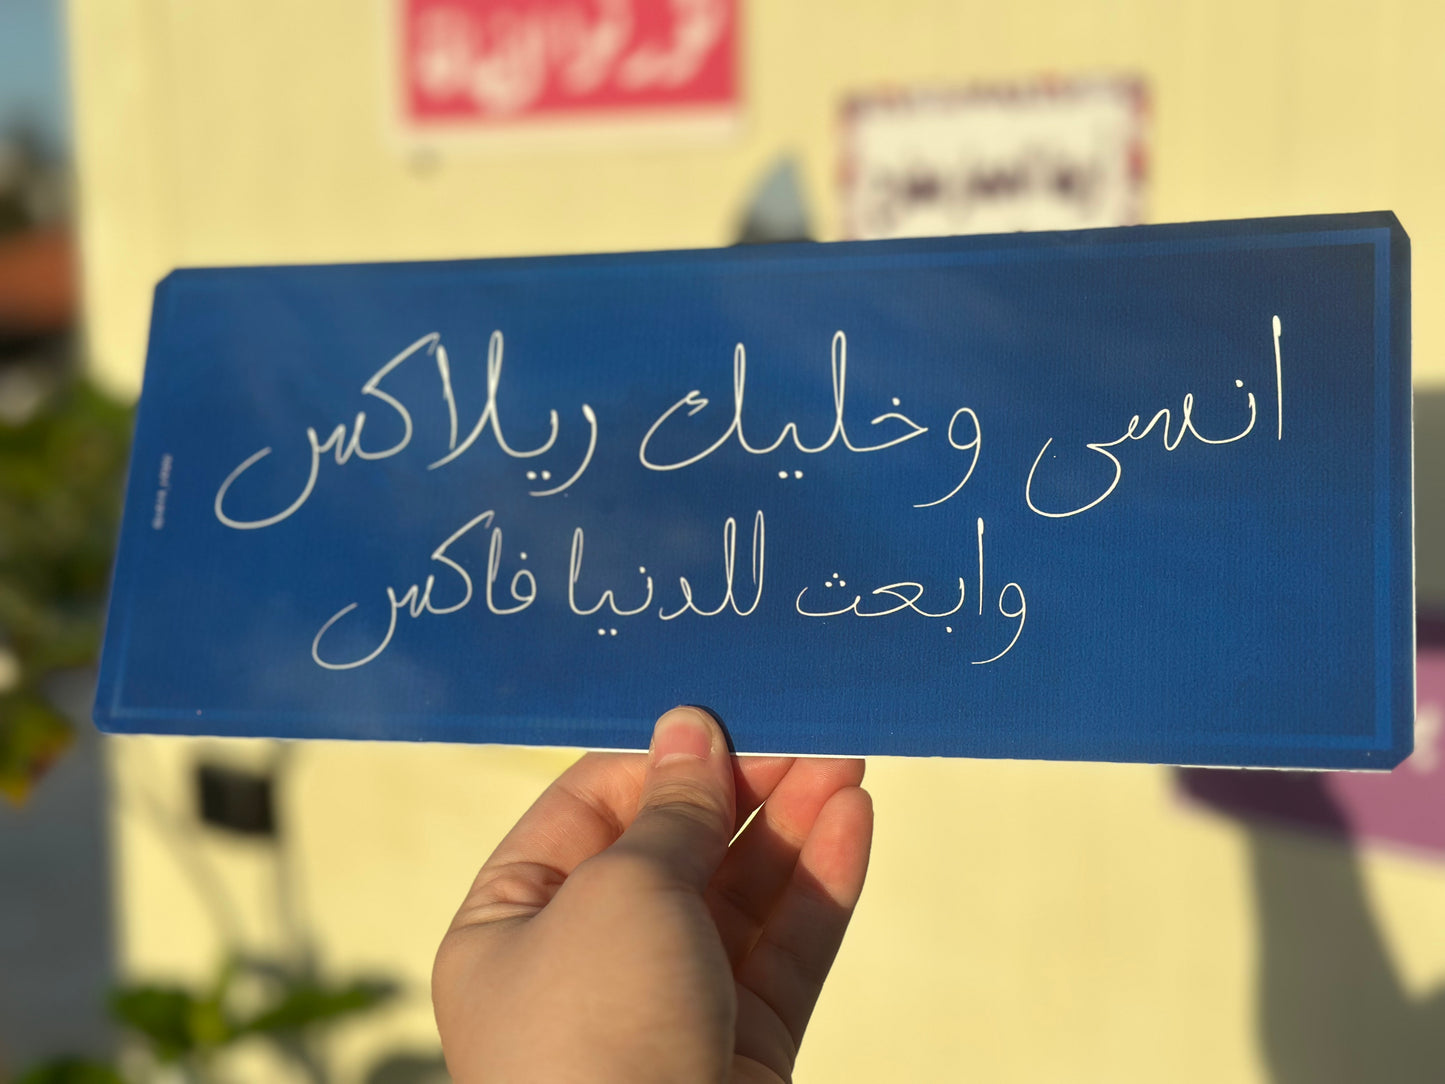 انسى وخليك ريلاكس
وابعث للدنيا فاكس